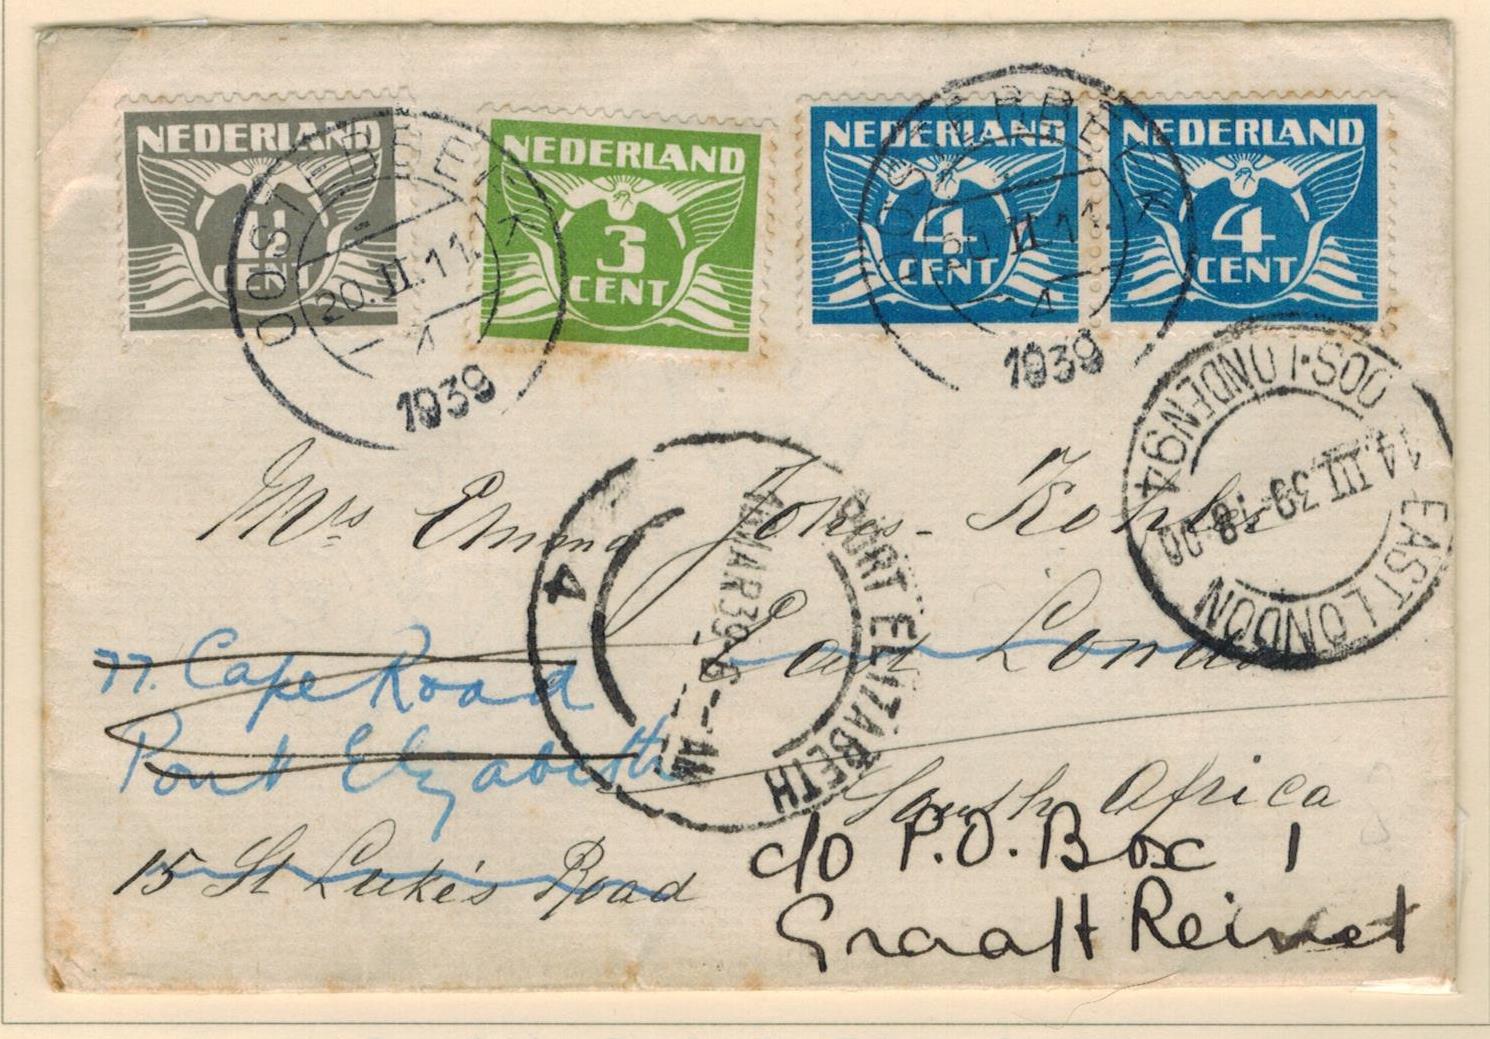 NEDERLAND
1½
CENT
NEDERLAND
3
CENT
NEDERLAND
4
CENT
NEDERLAND
4
CENT
OOSTERBEEK
20.II.11
1939
OOSTERBEEK
20.II.11
1939
OOS-LONDEN 94
14.III.39-18.00
EAST LONDON
PORT ELIZABETH
MAR 39-6-AM
4
Mrs Emma Jones-
East London
South Africa
15 St Luke's Road
77. Cape Road
Port Elizabeth
c/o P.O. Box 1
Graaff Reinet